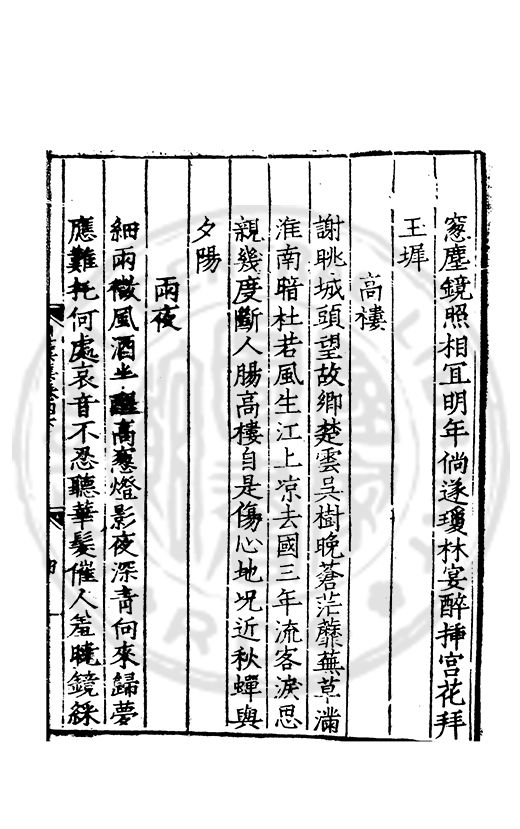 窓塵鏡照相冝明年倘遂瓊林宴醉揷宮花拜
玉墀
高樓
謝眺城頭望故鄉楚雲吳樹晚蒼茫蘼蕪草滿
淮南暗杜若風生江上凉去國三年流客淚思
親幾度斷人腸高樓自是傷心地况近秋蟬與
夕陽
雨夜
細雨微風酒坐醒高窻燈影夜深青向來歸夢
應難托何處哀音不忍聽華髮催人羞曉鏡綵
四